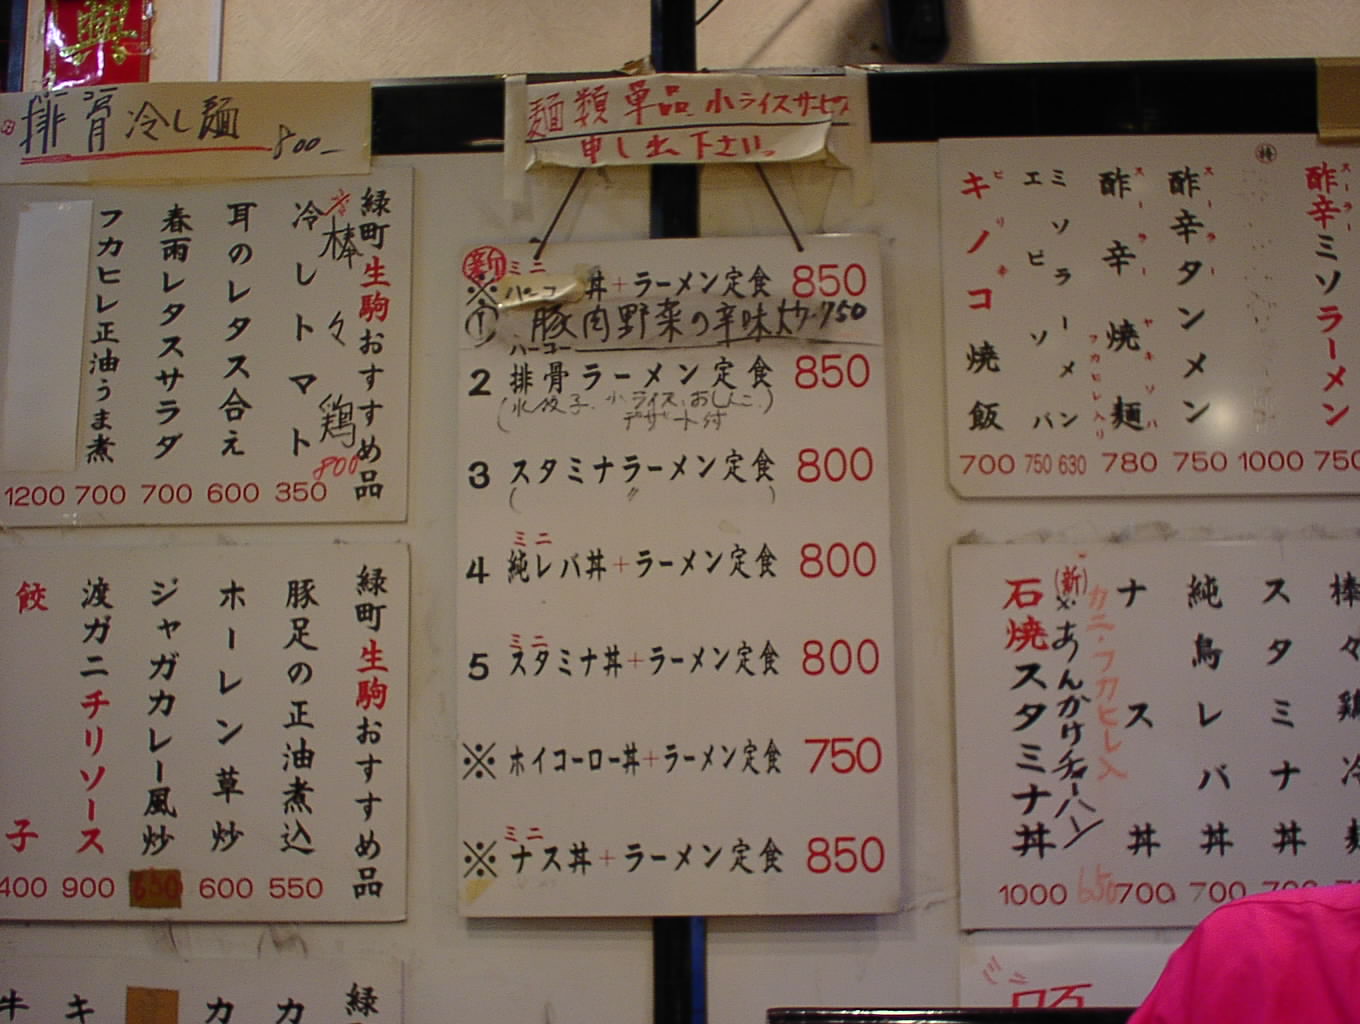 興
排骨冷し麺 800-
パーコー
麺類単品、小ライスサービス
申し出下さい。
緑町生駒おすすめ品
棒々鶏 800
冷しトマト 350
耳のレタス合え 600
春雨レタスサラダ 700
フカヒレ正油うま煮 700
1200
緑町生駒おすすめ品
豚足の正油煮込 550
ホーレン草炒 600
ジャガカレー風炒 650
渡ガニチリソース 900
餃子 400
緑
カ
カ
キ
牛
新
ミニ
※ パーコー丼+ラーメン定食 850
① 豚肉野菜の辛味炒 750
パーコー
2 排骨ラーメン定食 850
(水餃子、小ライス、おしんこ、)
デザート付
3 スタミナラーメン定食 800
( 〃 )
ミニ
4 純レバ丼+ラーメン定食 800
ミニ
5 スタミナ丼+ラーメン定食 800
※ ホイコーロー丼+ラーメン定食 750
ミニ
※ ナス丼+ラーメン定食 850
スーラー
酢辛ミソラーメン 750
特
1000
スーラー
酢辛タンメン 750
スーラーヤキソバ
酢辛焼麺 780
フカヒレ入り
ミソラーメン 630
エビソバ 750
ヒリキ
キノコ焼飯 700
棒々鶏冷麺
スタミナ丼 700
純鳥レバ丼 700
ナス丼 700
カニ・フカヒレ入
(新)
※あんかけチャーハン 650
石焼スタミナ丼 1000
ミニ